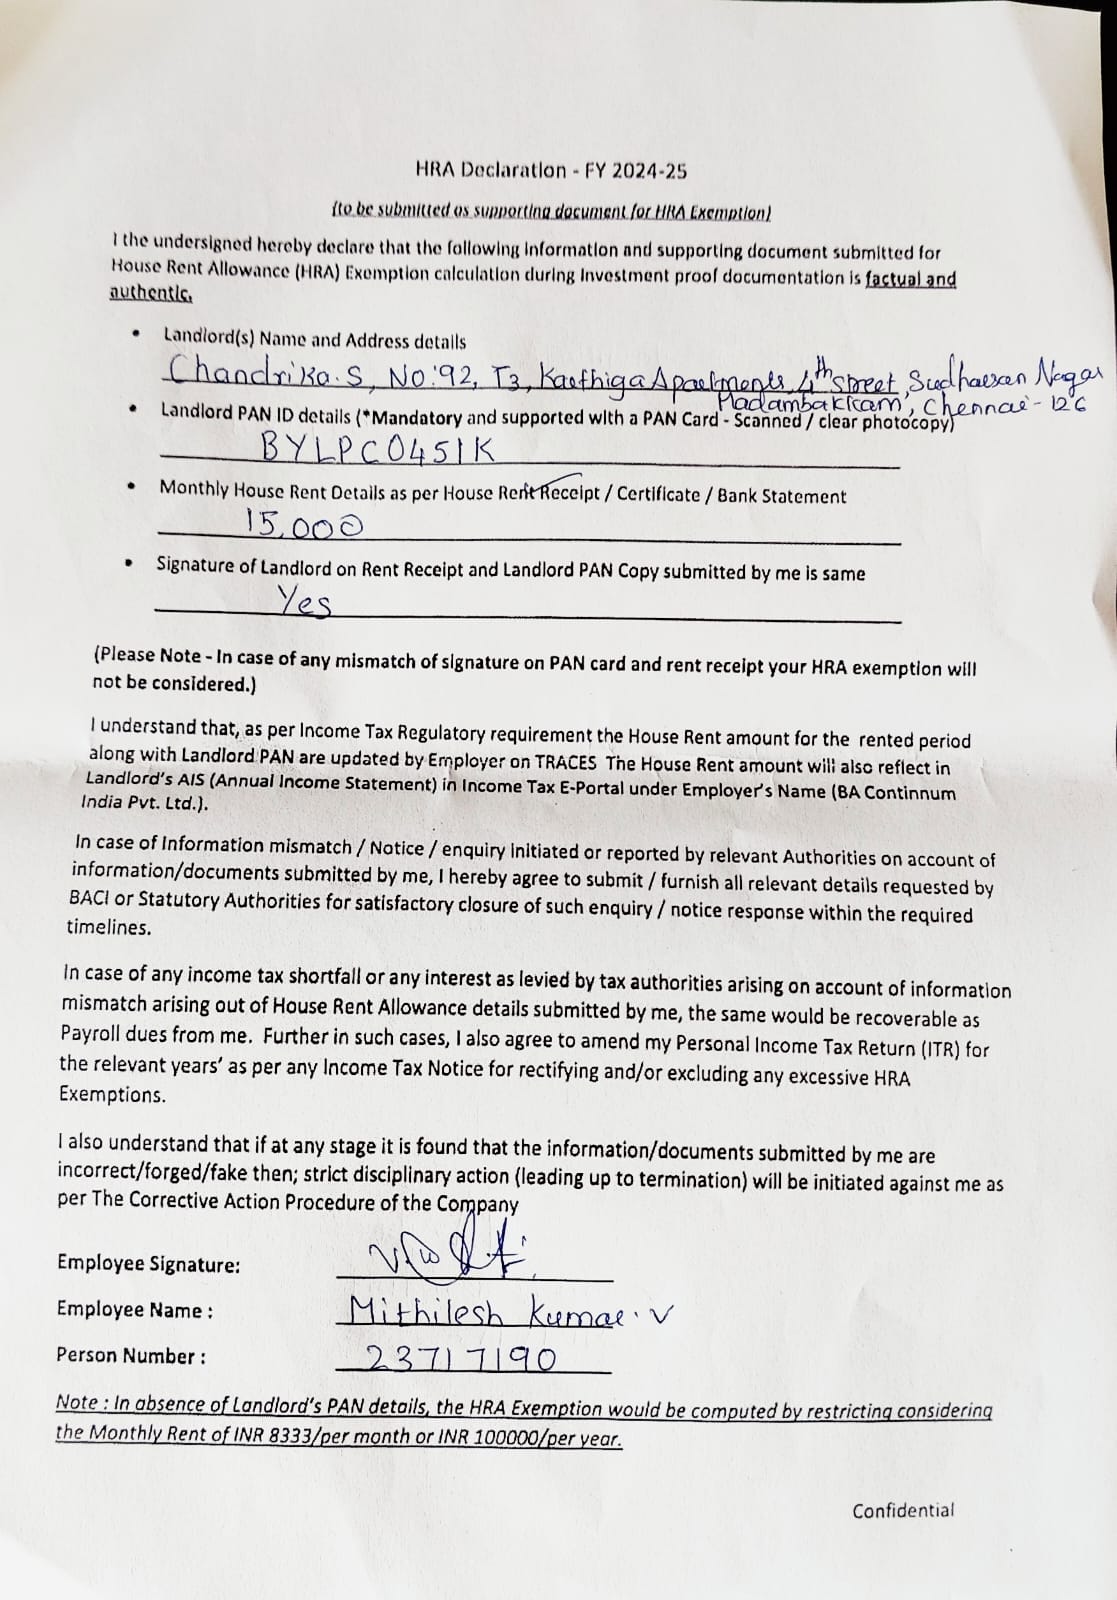 HRA Declaration - FY 2024-25
(to be submitted as supporting document for HRA Exemption)
I the undersigned hereby declare that the following information and supporting document submitted for
House Rent Allowance (HRA) Exemption calculation during Investment proof documentation is factual and
authentic.
• Landlord(s) Name and Address details
Chandrika.S, No:92, T3, Karthiga Apartments, 4th street, Sudharsan Nagar
Madambakkam, Chennai-126
• Landlord PAN ID details (*Mandatory and supported with a PAN Card - Scanned / clear photocopy)
BYLPC0451K
• Monthly House Rent Details as per House Rent Receipt / Certificate / Bank Statement
15,000
• Signature of Landlord on Rent Receipt and Landlord PAN Copy submitted by me is same
Yes
(Please Note - In case of any mismatch of signature on PAN card and rent receipt your HRA exemption will
not be considered.)
I understand that, as per Income Tax Regulatory requirement the House Rent amount for the rented period
along with Landlord PAN are updated by Employer on TRACES The House Rent amount will also reflect in
Landlord's AIS (Annual Income Statement) in Income Tax E-Portal under Employer's Name (BA Continnum
India Pvt. Ltd.).
In case of Information mismatch / Notice / enquiry initiated or reported by relevant Authorities on account of
information/documents submitted by me, I hereby agree to submit / furnish all relevant details requested by
BACI or Statutory Authorities for satisfactory closure of such enquiry / notice response within the required
timelines.
In case of any income tax shortfall or any interest as levied by tax authorities arising on account of information
mismatch arising out of House Rent Allowance details submitted by me, the same would be recoverable as
Payroll dues from me. Further in such cases, I also agree to amend my Personal Income Tax Return (ITR) for
the relevant years' as per any Income Tax Notice for rectifying and/or excluding any excessive HRA
Exemptions.
I also understand that if at any stage it is found that the information/documents submitted by me are
incorrect/forged/fake then; strict disciplinary action (leading up to termination) will be initiated against me as
per The Corrective Action Procedure of the Company
Employee Signature:
Employee Name : Mithilesh Kumar. V
Person Number : 23717190
Note : In absence of Landlord's PAN details, the HRA Exemption would be computed by restricting considering
the Monthly Rent of INR 8333/per month or INR 100000/per year.
Confidential